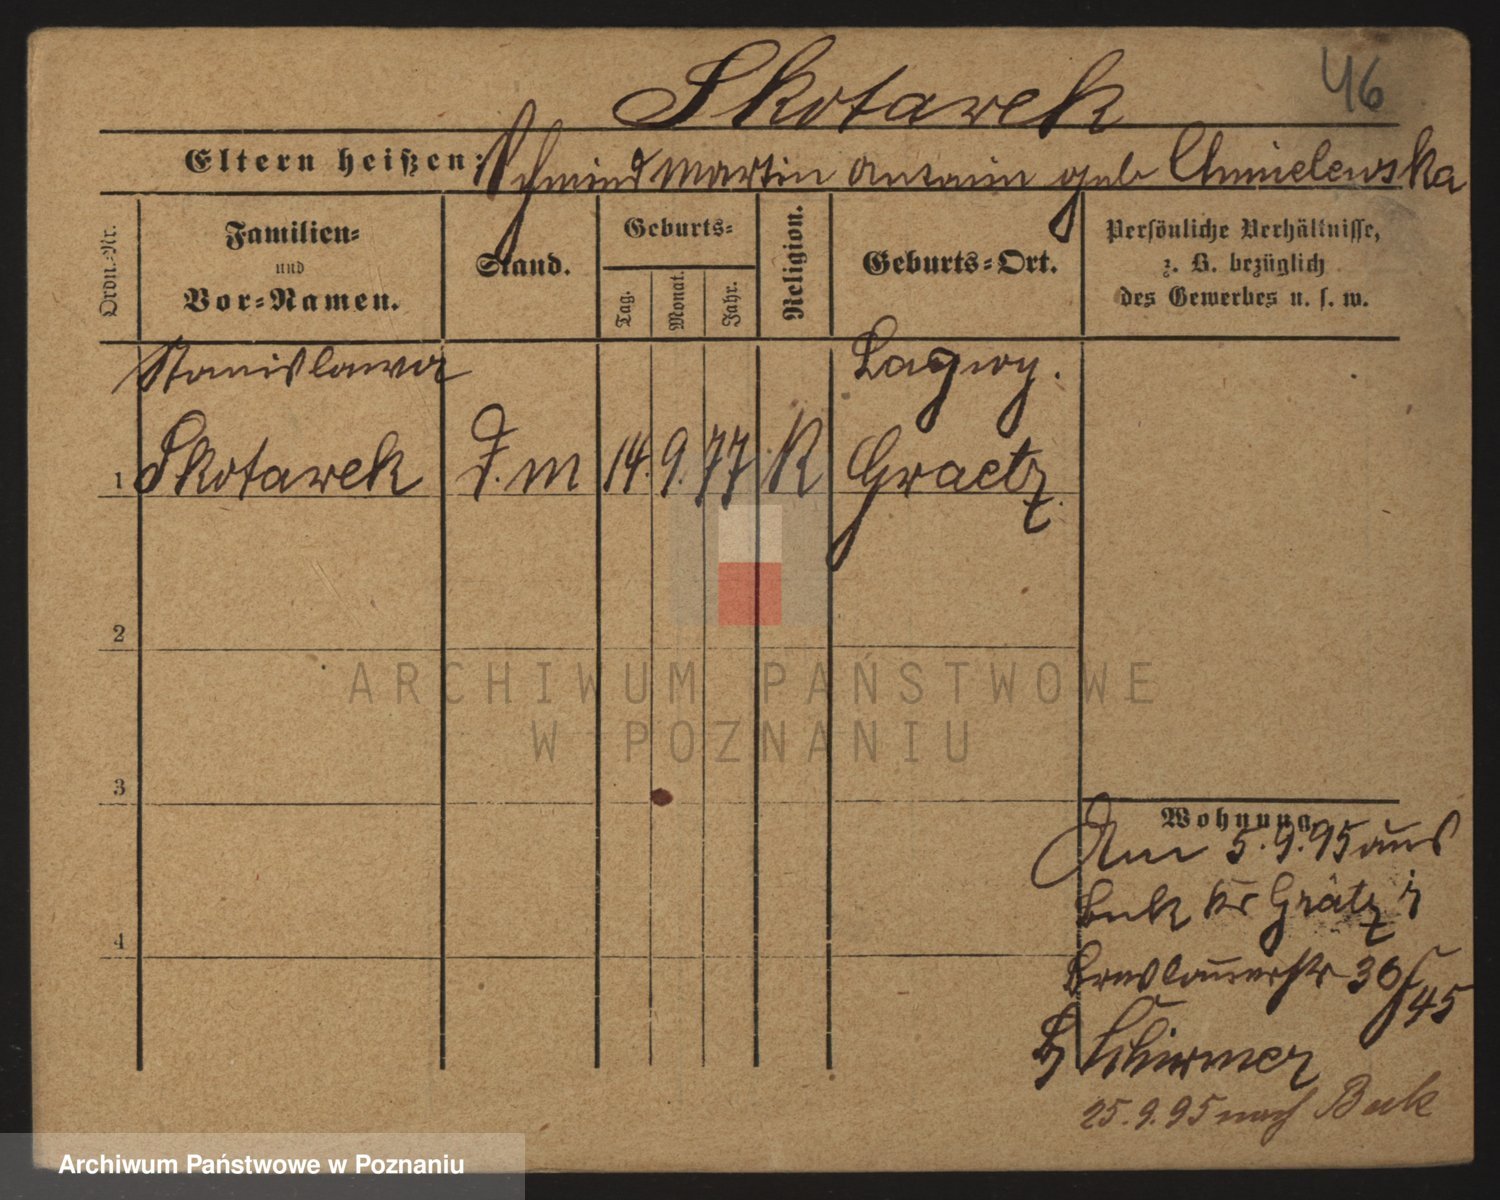 46
Skotarek
Eltern heißen: Schmied Martin Antonin geb Chmielewska
Ordn.-Nr.
Familien-
und
Vor-Namen.
Stand.
Geburts-
Tag.
Monat.
Jahr.
Religion.
Geburts-Ort.
Persönliche Verhältnisse,
z. B. bezüglich
des Gewerbes u. s. w.
Stanislawa Lagwy.
1 Skotarek D. m 14. 9. 77 K Graetz
2
3
4
ARCHIWUM PAŃSTWOWE
W POZNANIU
Wohnung
Am 5.9.95 aus
Buk Kr Grätz
Breslauerstr 36
45
b Schirmer
25.9.95 nach Buk
Archiwum Państwowe w Poznaniu